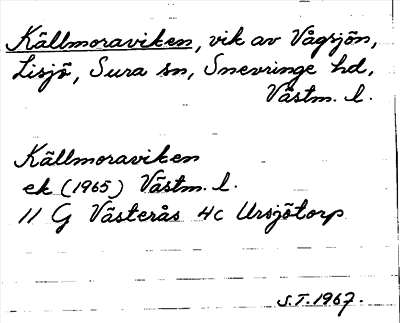 Källmoraviken, vik av Vågsjön,
Lisjö, Sura sn, Snevringe hd,
Västm. l.
Källmoraviken
ek (1965) Västm. l.
11 G Västerås 4c Ursjötorp
S.T. 1967.